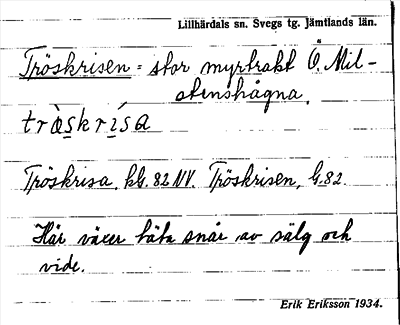 Lillhärdals sn. Svegs tg. Jämtlands län.
Tröskrisen = stor myrtrakt Ö. Mil-
stenshågna.
trö̀skrísa
Tröskrisa, kG. 82 NV. Tröskrisen, G. 82
Här växer täta snår av sälg och
vide.
Erik Eriksson 1934.